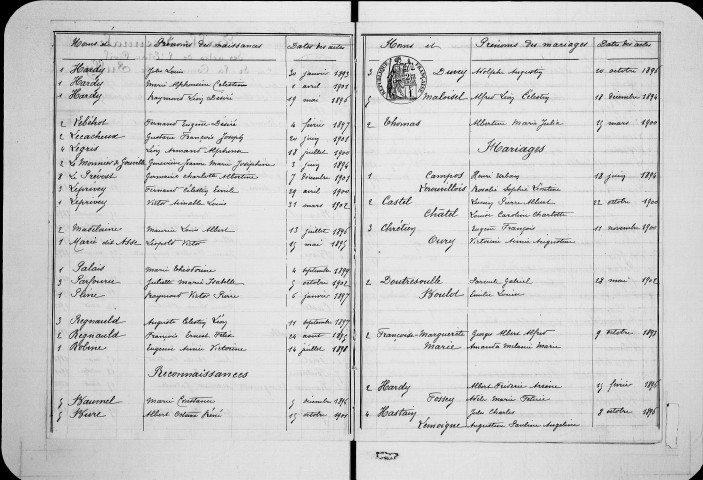 Noms et Prénoms des naissances Dates des actes
1 Hardy Jules Louis 20 janvier 1893
1 Hardy Marie Alphonsine Célestine 1 avril 1901
1 Hardy Raymond Léon Désiré 19 mai 1896
2 Lebéhot Fernand Eugène Désiré 4 février 1897
2 Lecacheux Gustave François Joseph 20 juin 1901
4 Legris Léon Armand Alphonse 18 juillet 1900
2 Le Monnier de Gouville Geneviève Jeanne Marie Joséphine 3 juin 1894
8 Le Prévost Germaine Charlotte Albertine 7 décembre 1901
3 Leprivey Fernand Célestin Emile 29 avril 1900
1 Leprivey Victor Aimable Louis 31 mars 1902
2 Madelaine Maurice Louis Albert 13 juillet 1896
1 Marie dit Asse Léopold Victor 15 mai 1895
1 Palais Marie 4 septembre 1899
3 Parfourru Juliette Marie Isabelle 5 octobre 1902
1 Pleine Raymond Victor Pierre 6 janvier 1897
3 Regnauld Auguste Célestin Léon 11 septembre 1897
2 Regnauld François Ernest Félix 24 août 1895
1 Robine Eugénie Annie Victorine 14 juillet 1898
Reconnaissances
Marie Constance décembre 1896
Albert Octave René 15 octobre 1901
Noms et Prénoms des mariages Dates des actes
3 Ducey Adolphe Augustin 20 octobre 1896
Maloisel Alfred Léon Célestin 18 décembre 1894
2 Thomas Albertine Marie Julia 15 mars 1900
Mariages
1 Campos Henri 18 juin 1894
Rosalie Sophie Léontine
2 Castel Pierre Albert 22 octobre 1900
Châtel Louise Caroline Charlotte
3 Chrétien Eugène François 11 novembre 1900
Cury Victorine Annie Augustine
2 Doutresoulle Gabriel 28 mai 1902
Boulot Emilie Louise
2 Françoise-Marguerite Georges Albert Alfred 9 octobre 1893
Marie Amanda Mélanie Marie
2 Hardy Albert Frédéric Arsène 15 février 1896
Fossey Adèle Marie
4 Hastain Jules Charles 8 octobre 1896
Lemoigne Augustine Pauline Angeline